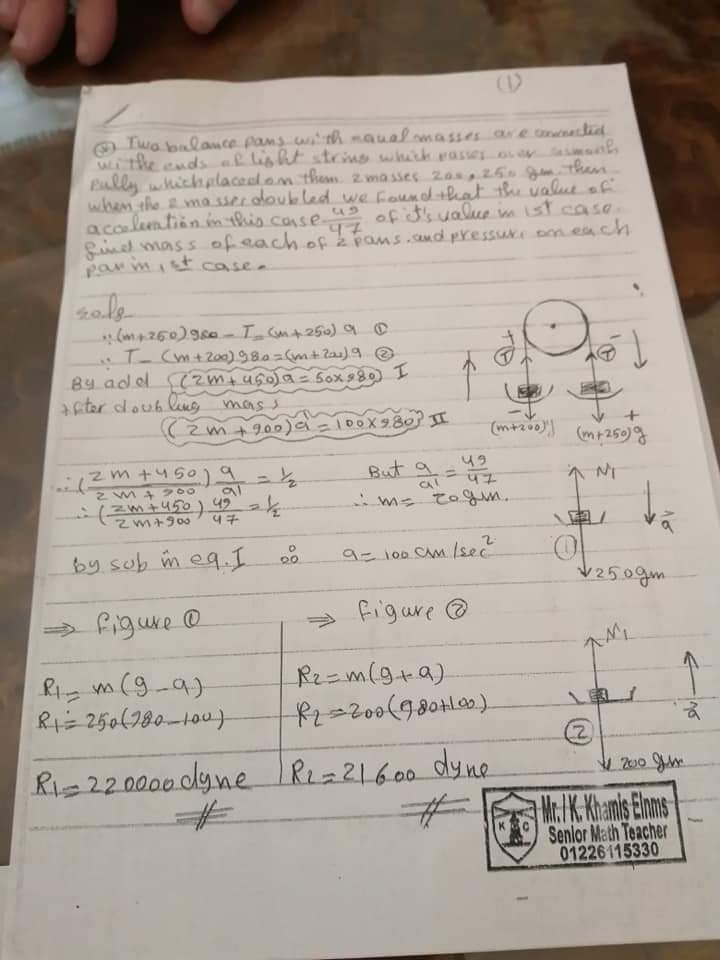 (1)
Two balance pans with equal masses are connected
withe ends of light string which passes over asmooth
Pully which placed on them 2 masses 200, 250 gm. then
when the 2 masses doubled we found that the value of
acceleration in this case 49/47 of it's value in 1st case.
find mass of each of 2 pans. and pressure on each
pan in 1st case.
∵ (m+250)980 - T = (m+250) a ①
∵ T - (m+200)980 = (m+200)a ②
By add (2m+450)a = 50×980 I
after doubling mass
(2m+900)a' = 100×980 II
+ -
T T
- +
(m+200) (m+250)g
∴ (2m+450 / 2m+900) a/a' = 1/2 But a/a' = 49/47
∴ (2m+450 / 2m+900) 49/47 = 1/2 ∴ m = 20 gm.
by sub in eq. I ∴ a = 100 cm/sec²
N1
a
① 250 gm
⇒ figure ① ⇒ figure ②
R1 = m(g-a) R2 = m(g+a)
R1 = 250(980-100) R2 = 200(980+100)
R1 = 220000 dyne R2 = 21600 dyne
N1
a
② 200 gm
K C
Mr./ K. Khamis Elnms
Senior Math Teacher
01226115330